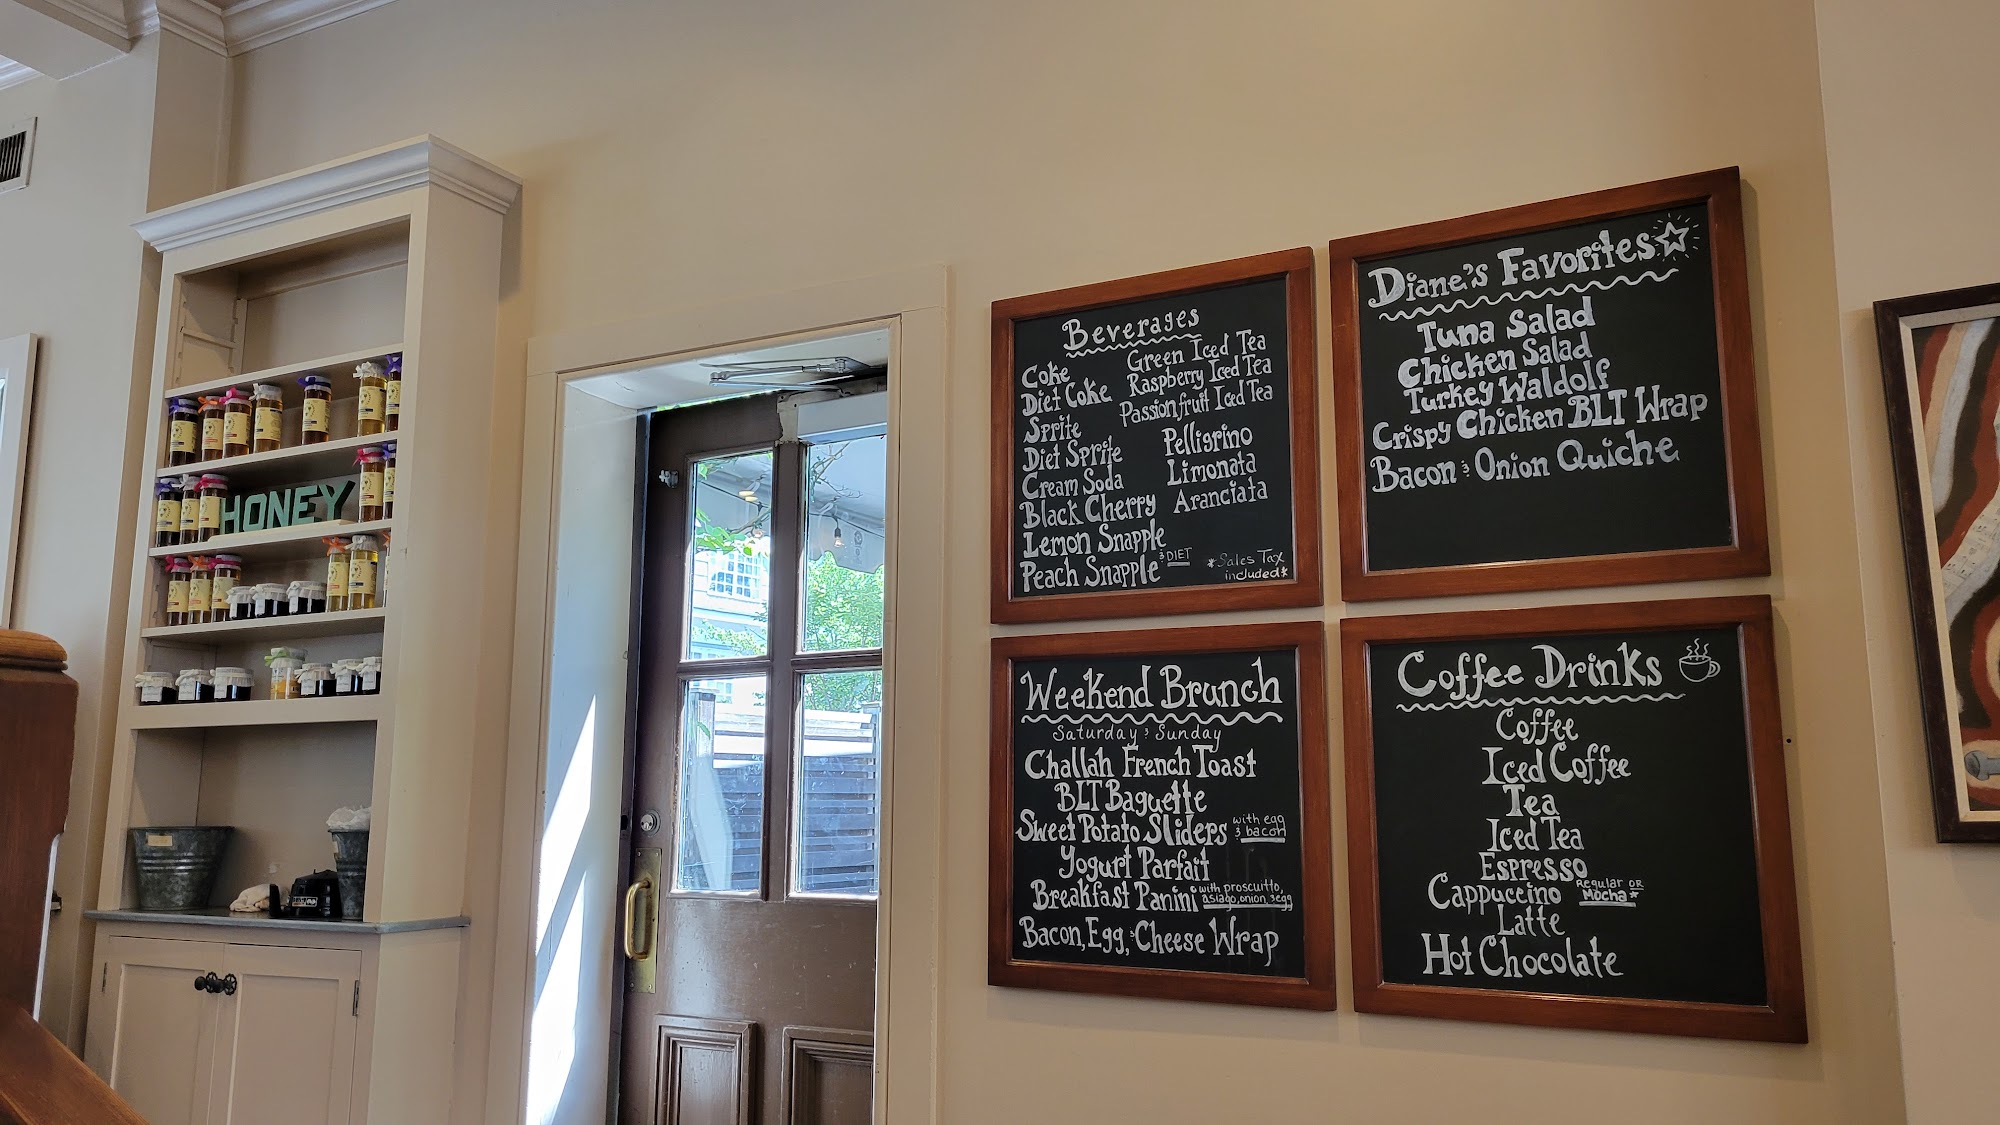 HONEY
Beverages
Coke
Diet Coke
Sprite
Diet Sprite
Cream Soda
Black Cherry
Lemon Snapple
Peach Snapple & DIET
Green Iced Tea
Raspberry Iced Tea
Passionfruit Iced Tea
Pelligrino
Limonata
Aranciata
*Sales Tax
included*
Diane's Favorites
Tuna Salad
Chicken Salad
Turkey Waldolf
Crispy Chicken BLT Wrap
Bacon & Onion Quiche
Weekend Brunch
Saturday & Sunday
Challah French Toast
BLT Baguette
Sweet Potato Sliders with egg & bacon
Yogurt Parfait
Breakfast Panini with proscuitto, asiago, onion, & egg
Bacon, Egg, & Cheese Wrap
Coffee Drinks
Coffee
Iced Coffee
Tea
Iced Tea
Espresso
Cappuccino Regular OR Mocha*
Latte
Hot Chocolate